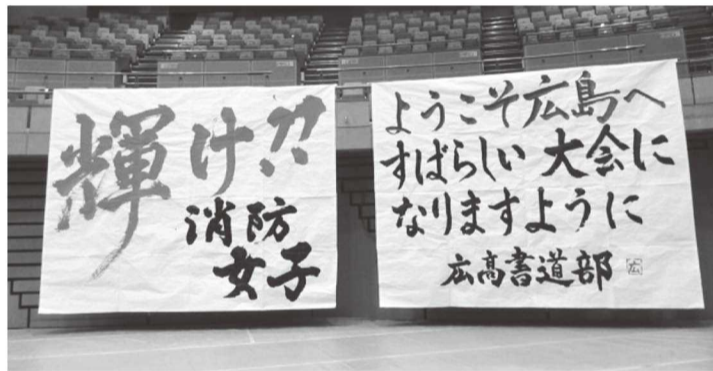 輝け!!
消防
女子
ようこそ広島へ
すばらしい大会に
なりますように
広高書道部 広